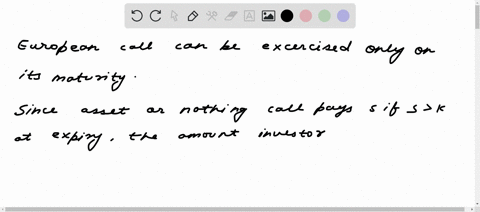 European call can be excercised only on
its maturity.
Since asset or nothing call pays s if s>k
at expiry, the amount investor